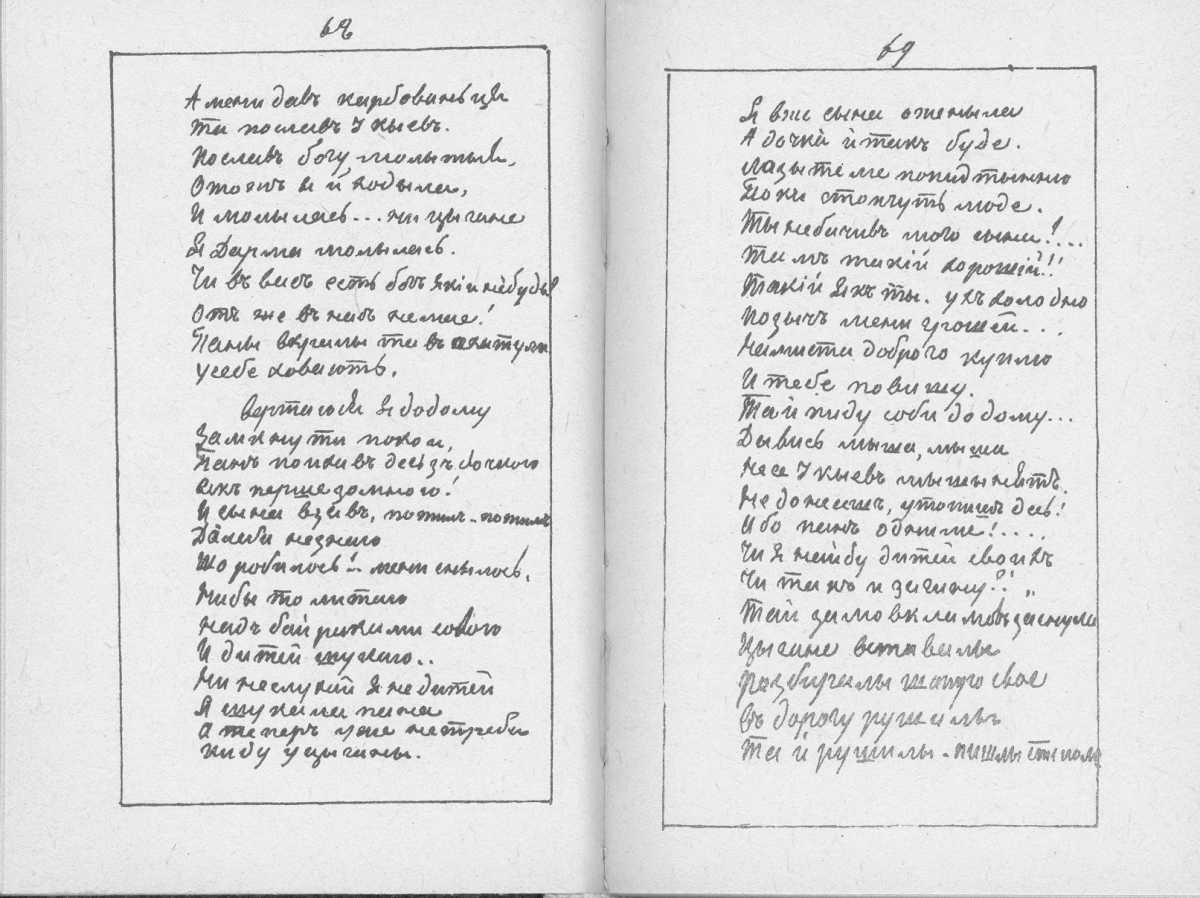 68
А мени давъ карбованьця
Та пославъ У Кыевъ.
Пославъ богу молытыся,
Отожъ я и ходыла,
И молылась... ни цыгане
Я Дарма молылась.
Чи въ васъ есть богъ який небудь?
Отъ же въ насъ немае!
Паны вкралы та въ шкатули
У себе ховають.
Вертаюся я додому
Замкнути покои,
Панъ поихавъ десь зъ дочкою
Якъ перше зо мною!
И сына взявъ,
Далеби незнаю
Що робилось и мени снылось,
Нибы то литаю
Надъ байраками совою
И дитей шукаю..
Ни неслухай я не дитей
Я шукала пана
А теперъ уже не треба
Киду у цыганы.
69
Я вже сына оженыла
А дочка й такъ буде.
Лазытеме попидтынню
Поки стопчуть люде.
Ты небачивъ мого сына!...
Тамъ такій хорошій!!
Такій якъ ты. ухъ холодно
Позычъ мени грошей...
Намиста доброго куплю
И тебе повишу.
Тай пиду соби додому...
Дывись мыша, мыша
Несе У Кыевъ мышенятъ.
Не донесешъ, утопишъ десь!
Ибо панъ однime!....
Чи я найду дитей своихъ
Чи такъ и загину?!„
Тай замовкла мовъ заснула
Цыгане вставалы
Разбиралы шатро свое
Въ дорогу рушалы
Та й рушилы - пишлы степомъ